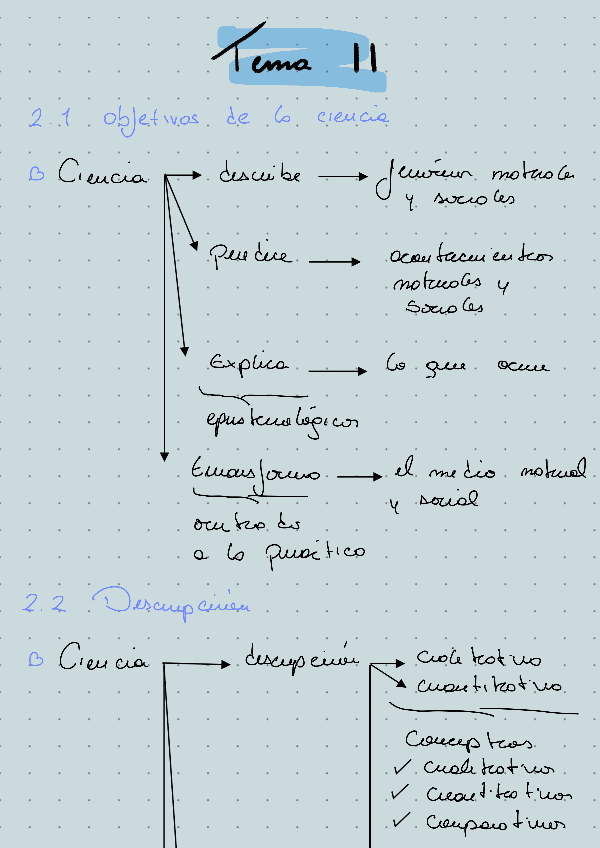 Tema II
2.1 Objetivos de la ciencia
Ciencia describe fenómen naturales
y sociales
Predice acontecimientos
naturales y
sociales
Explica lo que ocurre
epistemológicos
Transforma el medio natural
y social
orientado
a la práctica
2.2 Descripción
Ciencia descripción cualitativa
cuantitativa
Conceptos
✓ cualitativos
✓ cuantitativos
✓ comparativos